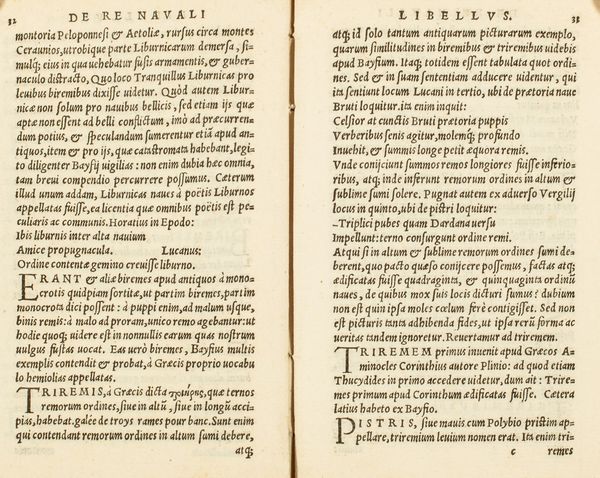 32
DE RE NAVALI
montoria Peloponnesi & Aetoliæ, rursus circa montes
Ceraunios, utrobique parte Liburnicarum demersa, si=
mulq; eius in qua uehebatur fusis armamentis, & guber=
naculo distracto, Quo loco Tranquillus Liburnicas pro
leuibus biremibus dixisse uidetur. Quòd autem Libur=
nicæ non solum pro nauibus bellicis, sed etiam ijs quæ
aptæ non essent ad belli conflictum, imò ad præcurren=
dum potius, & speculandum sumerentur etiã apud an=
tiquos, item & pro ijs, quæ catastromata habebant, legi=
to diligenter Bayfij uigilias: non enim dubia hæc omnia,
tam breui compendio percurrere possumus. Cæterum
illud unum addam, Liburnicas naues à poëtis Liburnos
appellatas fuisse, ea licentia quæ omnibus poëtis est pe=
culiaris ac communis. Horatius in Epodo:
Ibis liburnis inter alta nauium
Amice propugnacula. Lucanus:
Ordine contentæ gemino creuisse liburno.
ERANT & aliæ biremes apud antiquos à mono=
crotis quidpiam sortitæ, ut partim biremes, partim
monocrota dici possent: à puppi enim, ad malum usque,
binis remis: à malo ad proram, unico remo agebantur: ut
hodie quoq; uidere est in nonnullis earum quas nostrum
uulgus fustas uocat. Eas uerò biremes, Bayfius multis
exemplis contendit & probat, à Græcis proprio uocabu
lo hemiolias appellatas.
TRIREMIS, à Græcis dicta τριήρης, quæ ternos
remorum ordines, siue in altũ, siue in longũ acci=
pias, habebat. galée de troys rames pour banc. Sunt enim
qui contendant remorum ordines in altum sumi debere,
atq;
LIBELLVS.
33
atq; id solo tantum antiquarum picturarum exemplo,
quarum similitudines in biremibus & triremibus uidebis
apud Bayfium. Itaq; totidem essent tabulata quot ordi=
nes. Sed & in suam sententiam adducere uidentur, qui
ita sentiunt locum Lucani in tertio, ubi de prætoria naue
Bruti loquitur. ita enim inquit:
Celsior at cunctis Bruti prætoria puppis
Verberibus senis agitur, molemq; profundo
Inuehit, & summis longe petit æquora remis.
Vnde conijciunt summos remos longiores fuisse inferio=
ribus, atq; inde inferunt remorum ordines in altum &
sublime sumi solere. Pugnat autem ex aduerso Vergilij
locus in quinto, ubi de pistri loquitur:
-Triplici pubes quam Dardana uersu
Impellunt: terno consurgunt ordine remi.
Atqui si in altum & sublime remorum ordines sumi de=
berent, quo pacto quæso conijcere possemus, factas atq;
ædificatas fuisse quadraginta, & quinquaginta ordinũ
naues, de quibus mox suis locis dicturi sumus? dubium
non est quin ipsa moles cœlum ferè contigisset. Sed non
est picturis tanta adhibenda fides, ut ipsa rerũ forma ac
ueritas tandem ignoretur. Reuertamur ad triremem.
TRIREMEM primus inuenit apud Græcos A=
minocles Corinthius autore Plinio: ad quod etiam
Thucydides in primo accedere uidetur, dum ait: Trire=
mes primum apud Corinthum ædificatas fuisse. Cætera
latius habeto ex Bayfio.
PISTRIS, siue mauis cum Polybio pristim ap=
pellare, triremium leuium nomen erat. Ita enim tri=
c
remes